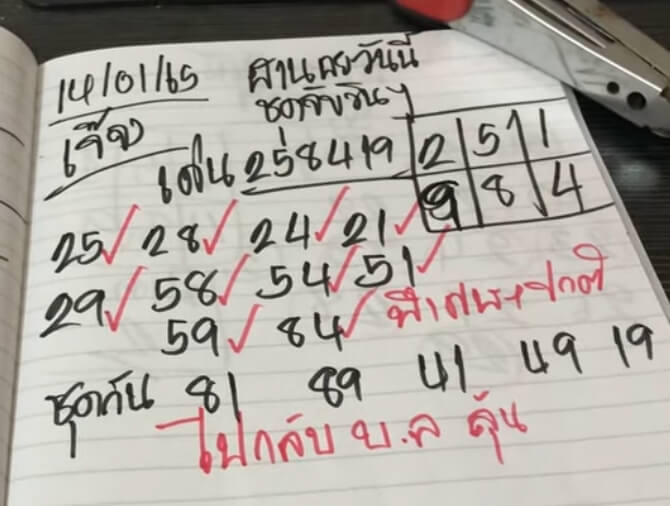 14/01/65 ฮานอยวันนี้
ชุดจับวิน
เจ๊ง
เด่น 258419
2 5 1
9 8 4
25 28 24 21
29 58 54 51
59 84 พิเศษ+ปกติ
ชุดกัน 81 89 41 49 19
ไปกลับ บ.ล ลุ้น